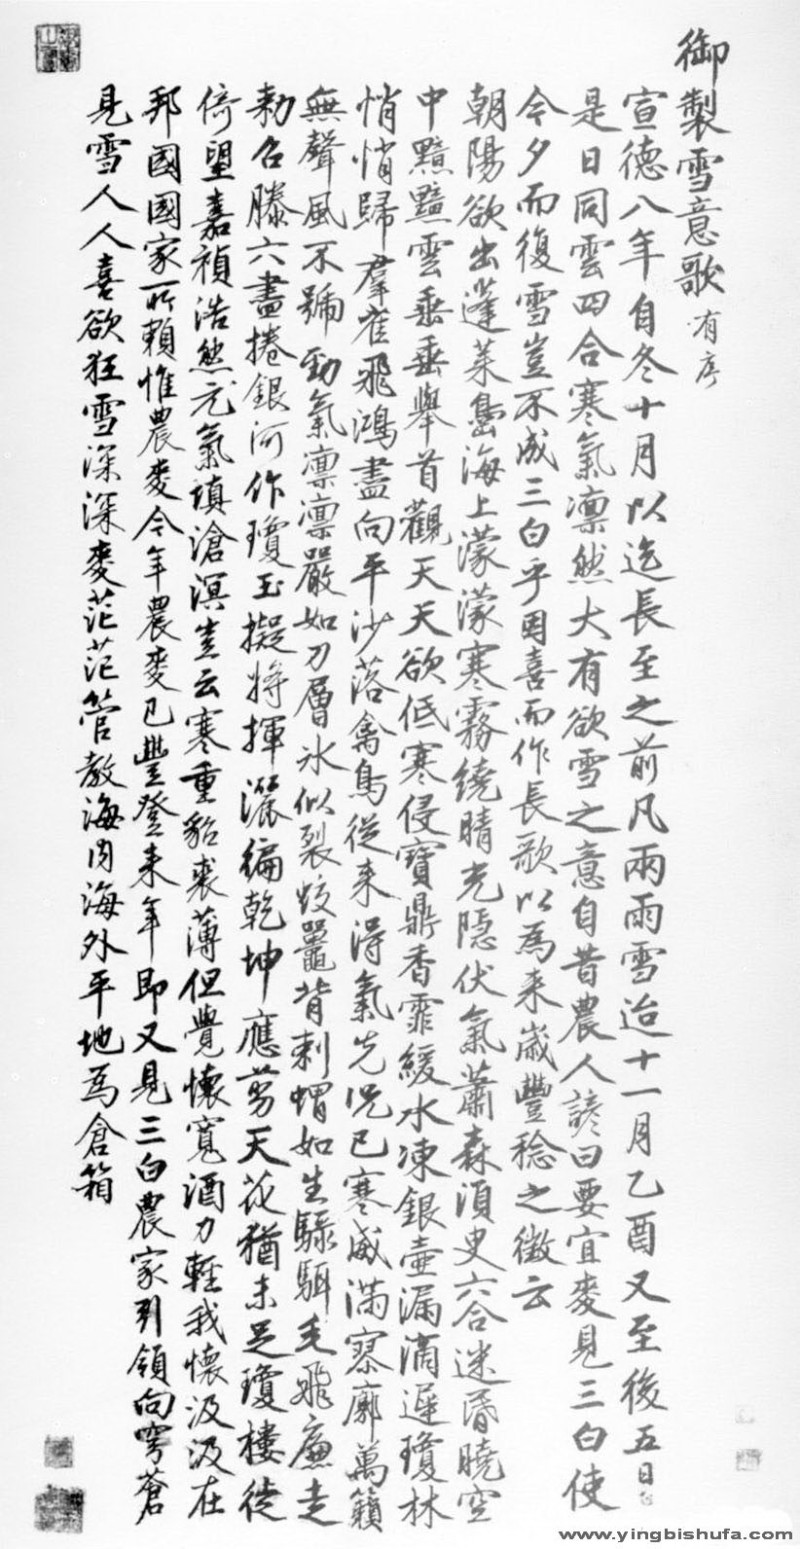 御製雪意歌有序
宣德八年自冬十月以迄長至之前凡兩雨雪迨十一月乙酉又至後五日也
是日同雲四合寒氣凛然大有欲雪之意自昔農人諺曰要宜麥見三白使
今夕而復雪豈不成三白乎因喜而作長歌以為来歲豐稔之徵云
朝陽欲出蓬莱島海上濛濛寒霧繞晴光隱伏氣蕭森須臾六合迷昏曉空
中黯黯雲垂垂舉首觀天天欲低寒侵寶鼎香霏緩水凍銀壺漏滴遲瓊林
悄悄歸羣雀飛鴻盡向平沙落禽鳥從来得氣先况已寒威滿寥廓萬籟
無聲風不號勁氣凛凛嚴如刀層冰似裂蛟鼉背刺蝟如生騄駬毛飛廉走
勅召滕六盡捲銀河作瓊玉擬將揮灑徧乾坤應剪天花猶未足瓊樓徒
倚望嘉禎浩然元氣填滄溟豈云寒重貂裘薄但覺懷寬酒力輕我懷汲汲在
邦國國家所賴惟農麥今年農麥已豐登来年即又見三白農家引領向穹蒼
見雪人人喜欲狂雪深深麥茫茫管教海内海外平地為倉箱
www.yingbishufa.com